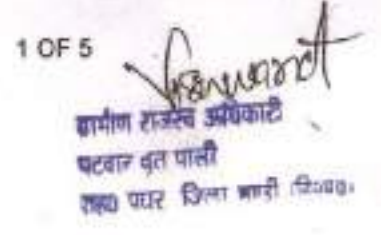 1 OF 5
ग्रामीण राजस्व अधिकारी
पटवार वृत पाली
पधर जिला मण्डी